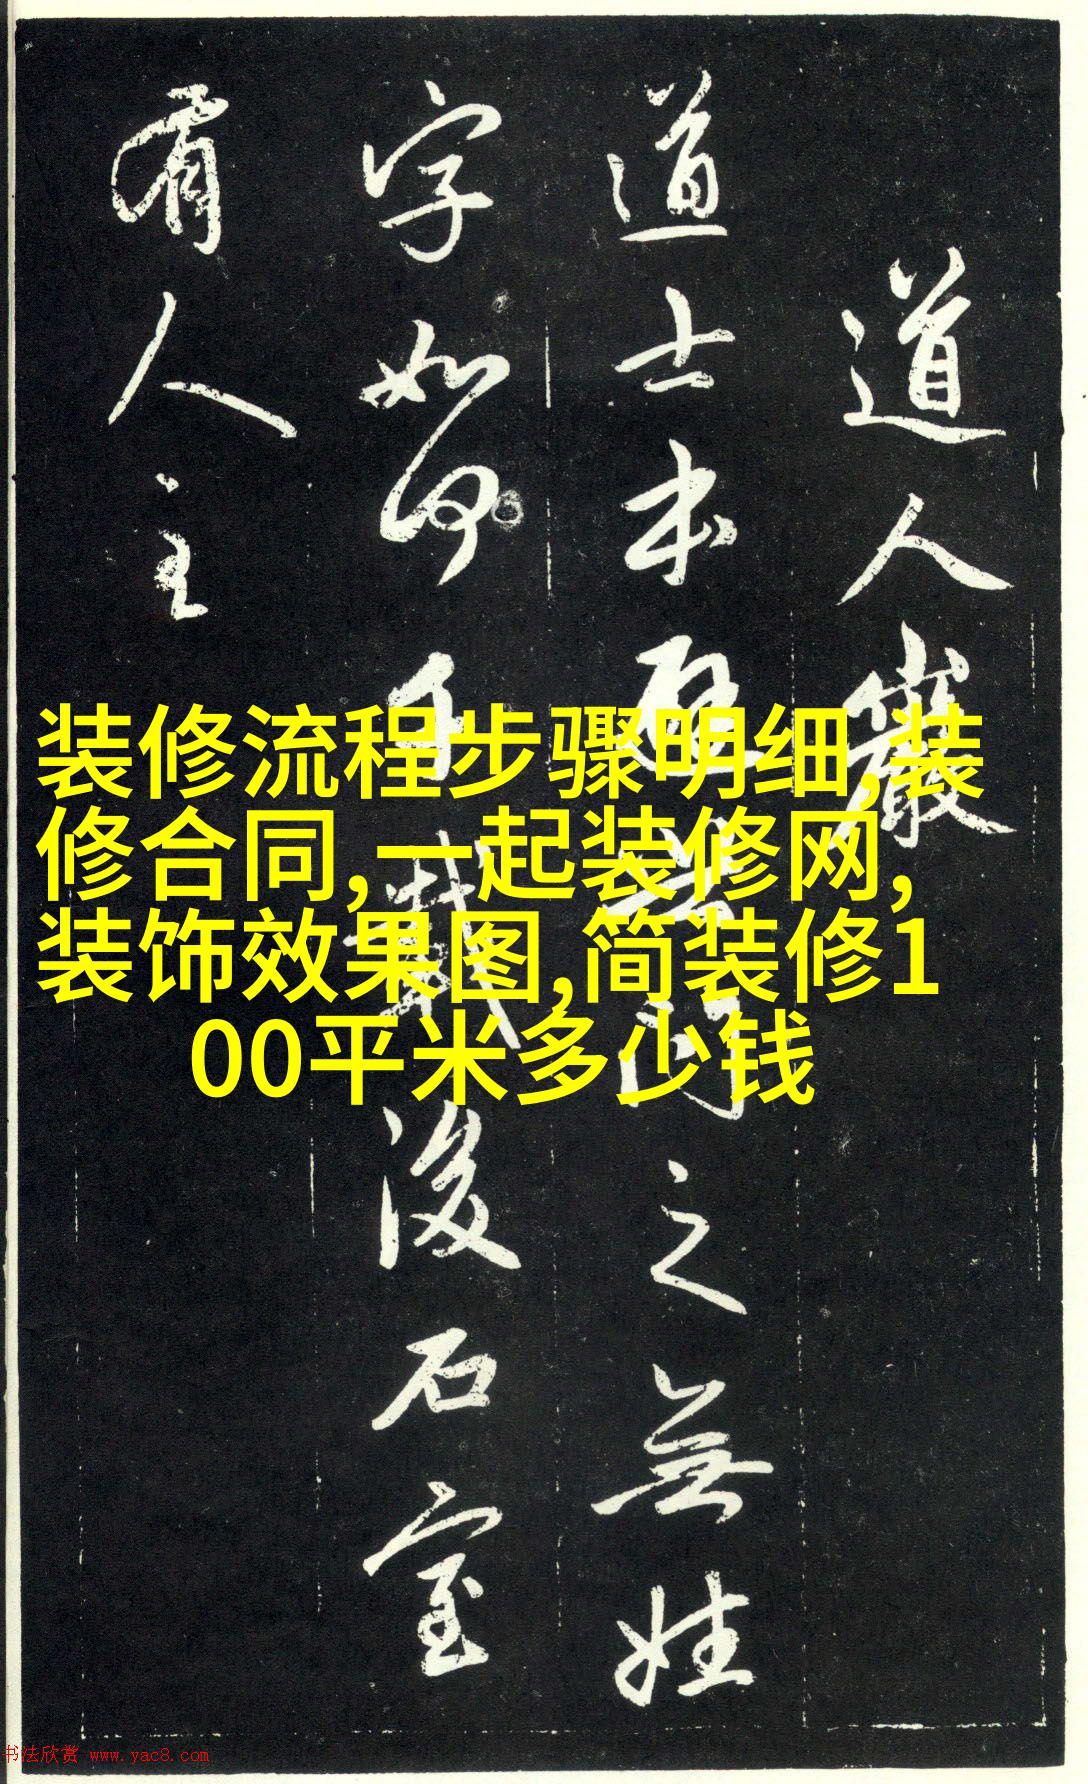 道人巖
道士本避
之無姓
字如何千載後石室
有人主
装修流程步骤明细,装
修合同,一起装修网,
装饰效果图,简装修1
00平米多少钱
书法欣赏 www.yac8.com